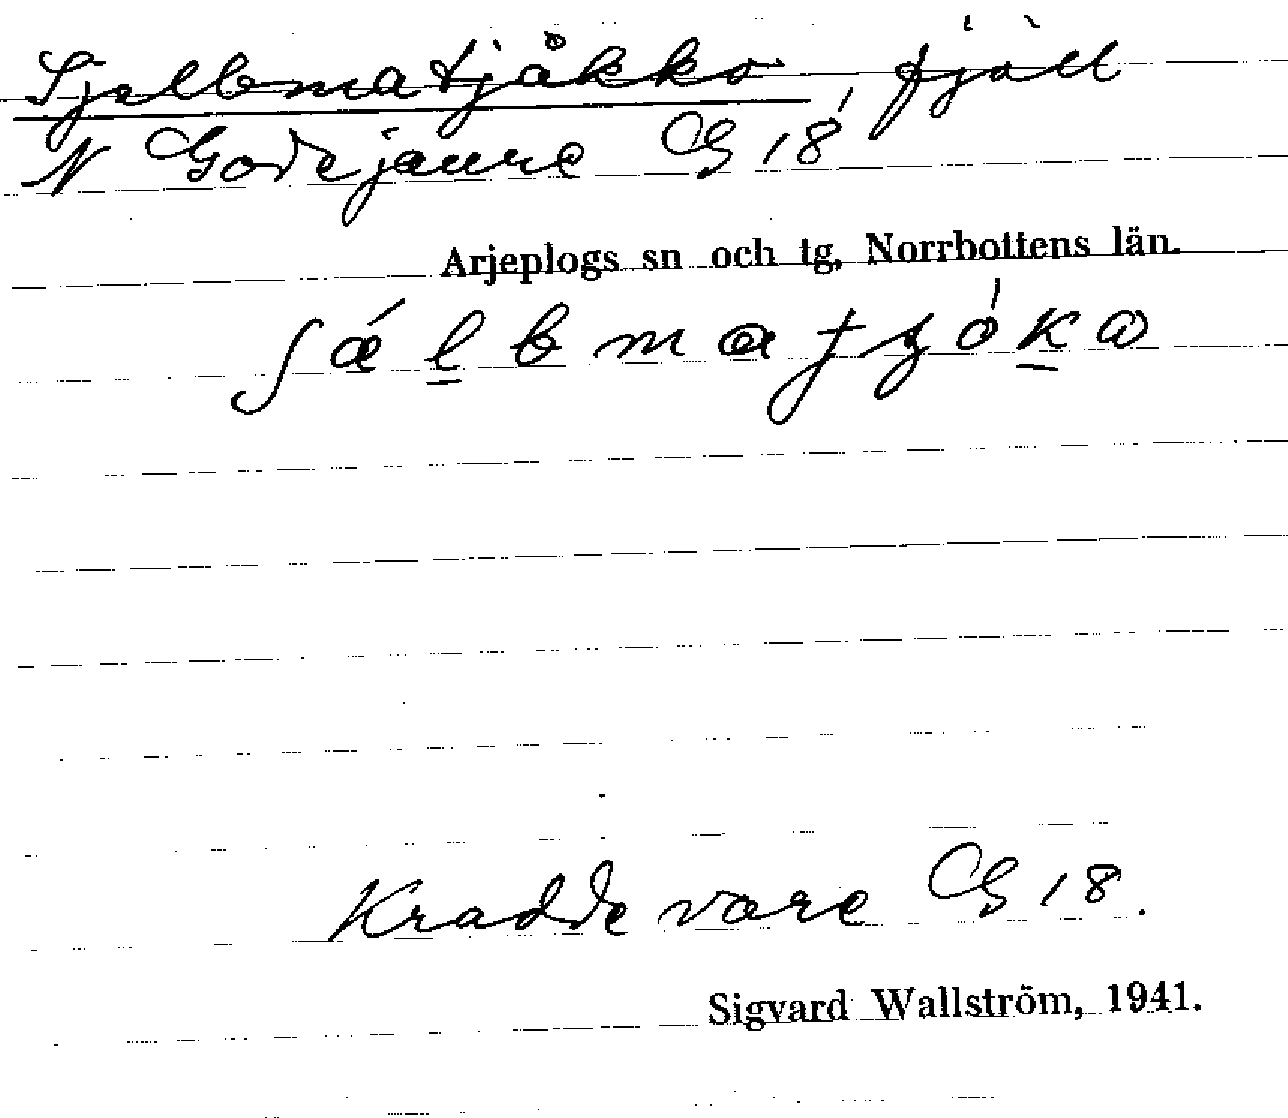 Sjelbmatjåkko, fjäll
N Godejaure G 18
Arjeplogs sn och tg, Norrbottens län.
ʃǽl̲bmatʒókɷ
Kraddevare G 18.
Sigvard Wallström, 1941.